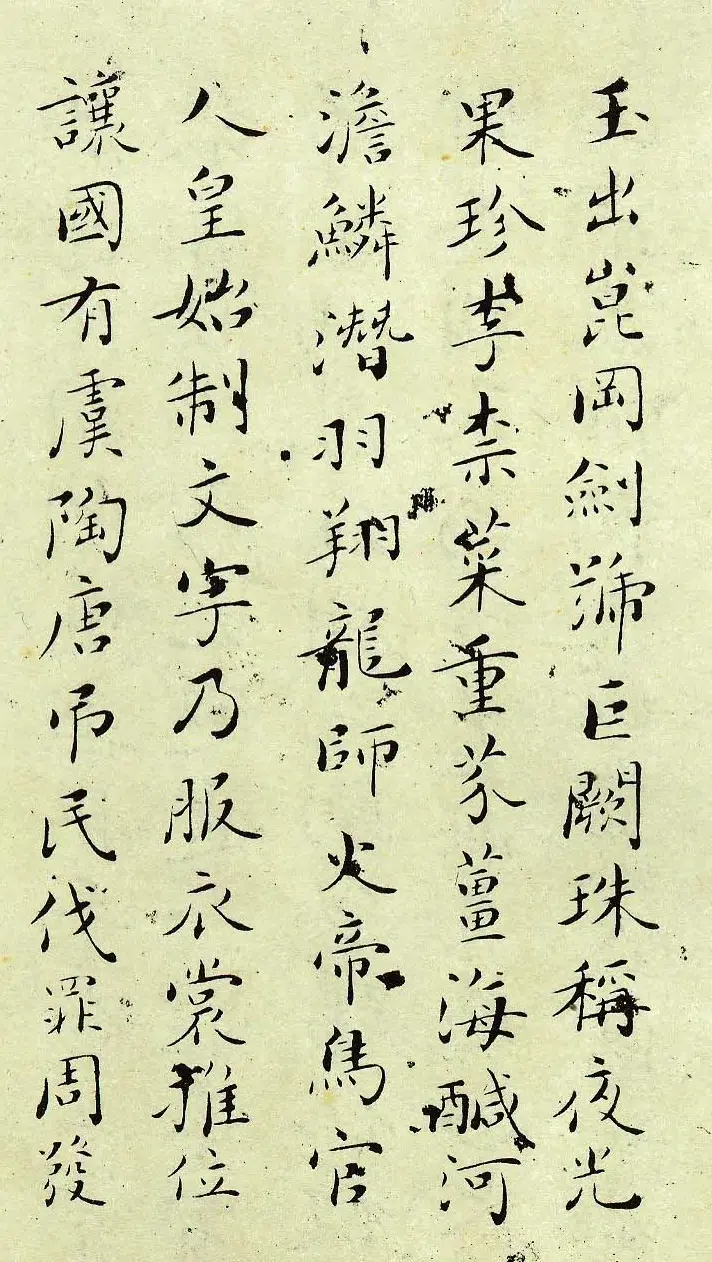 玉出崑岡劍號巨闕珠稱夜光
果珍李柰菜重芥薑海醎河
澹鱗潛羽翔龍師火帝鳥官
人皇始制文字乃服衣裳推位
讓國有虞陶唐吊民伐罪周發